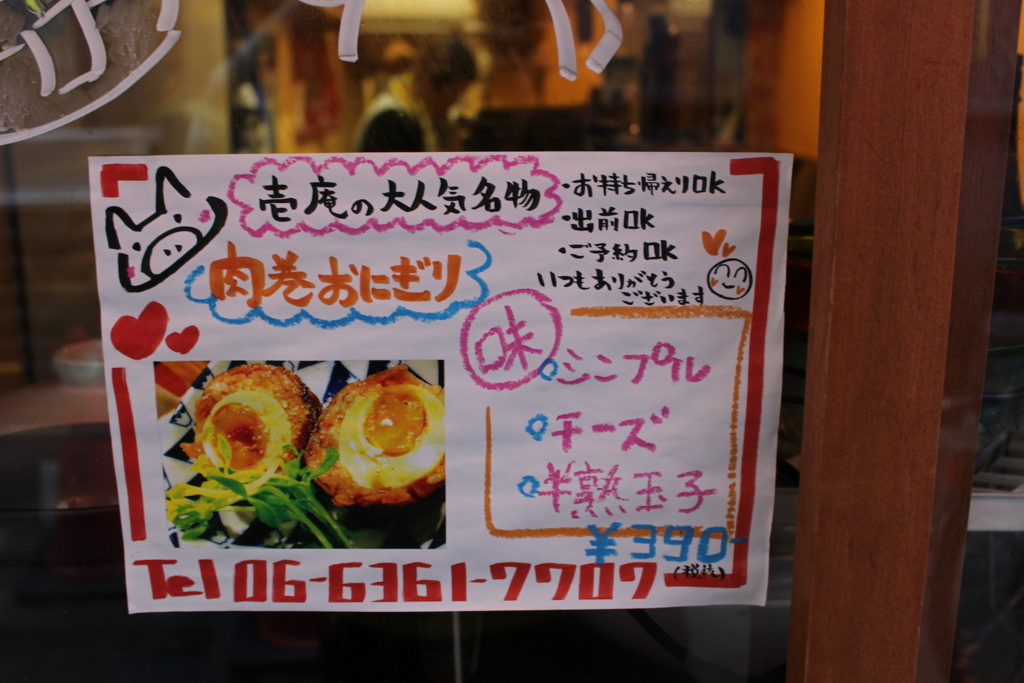 壱庵の大人気名物
肉巻おにぎり
・お持ち帰えりOK
・出前OK
・ご予約OK
いつもありがとう
ございます
味
シンプル
チーズ
半熟玉子
¥390-
(税抜)
Tel 06-6361-7707